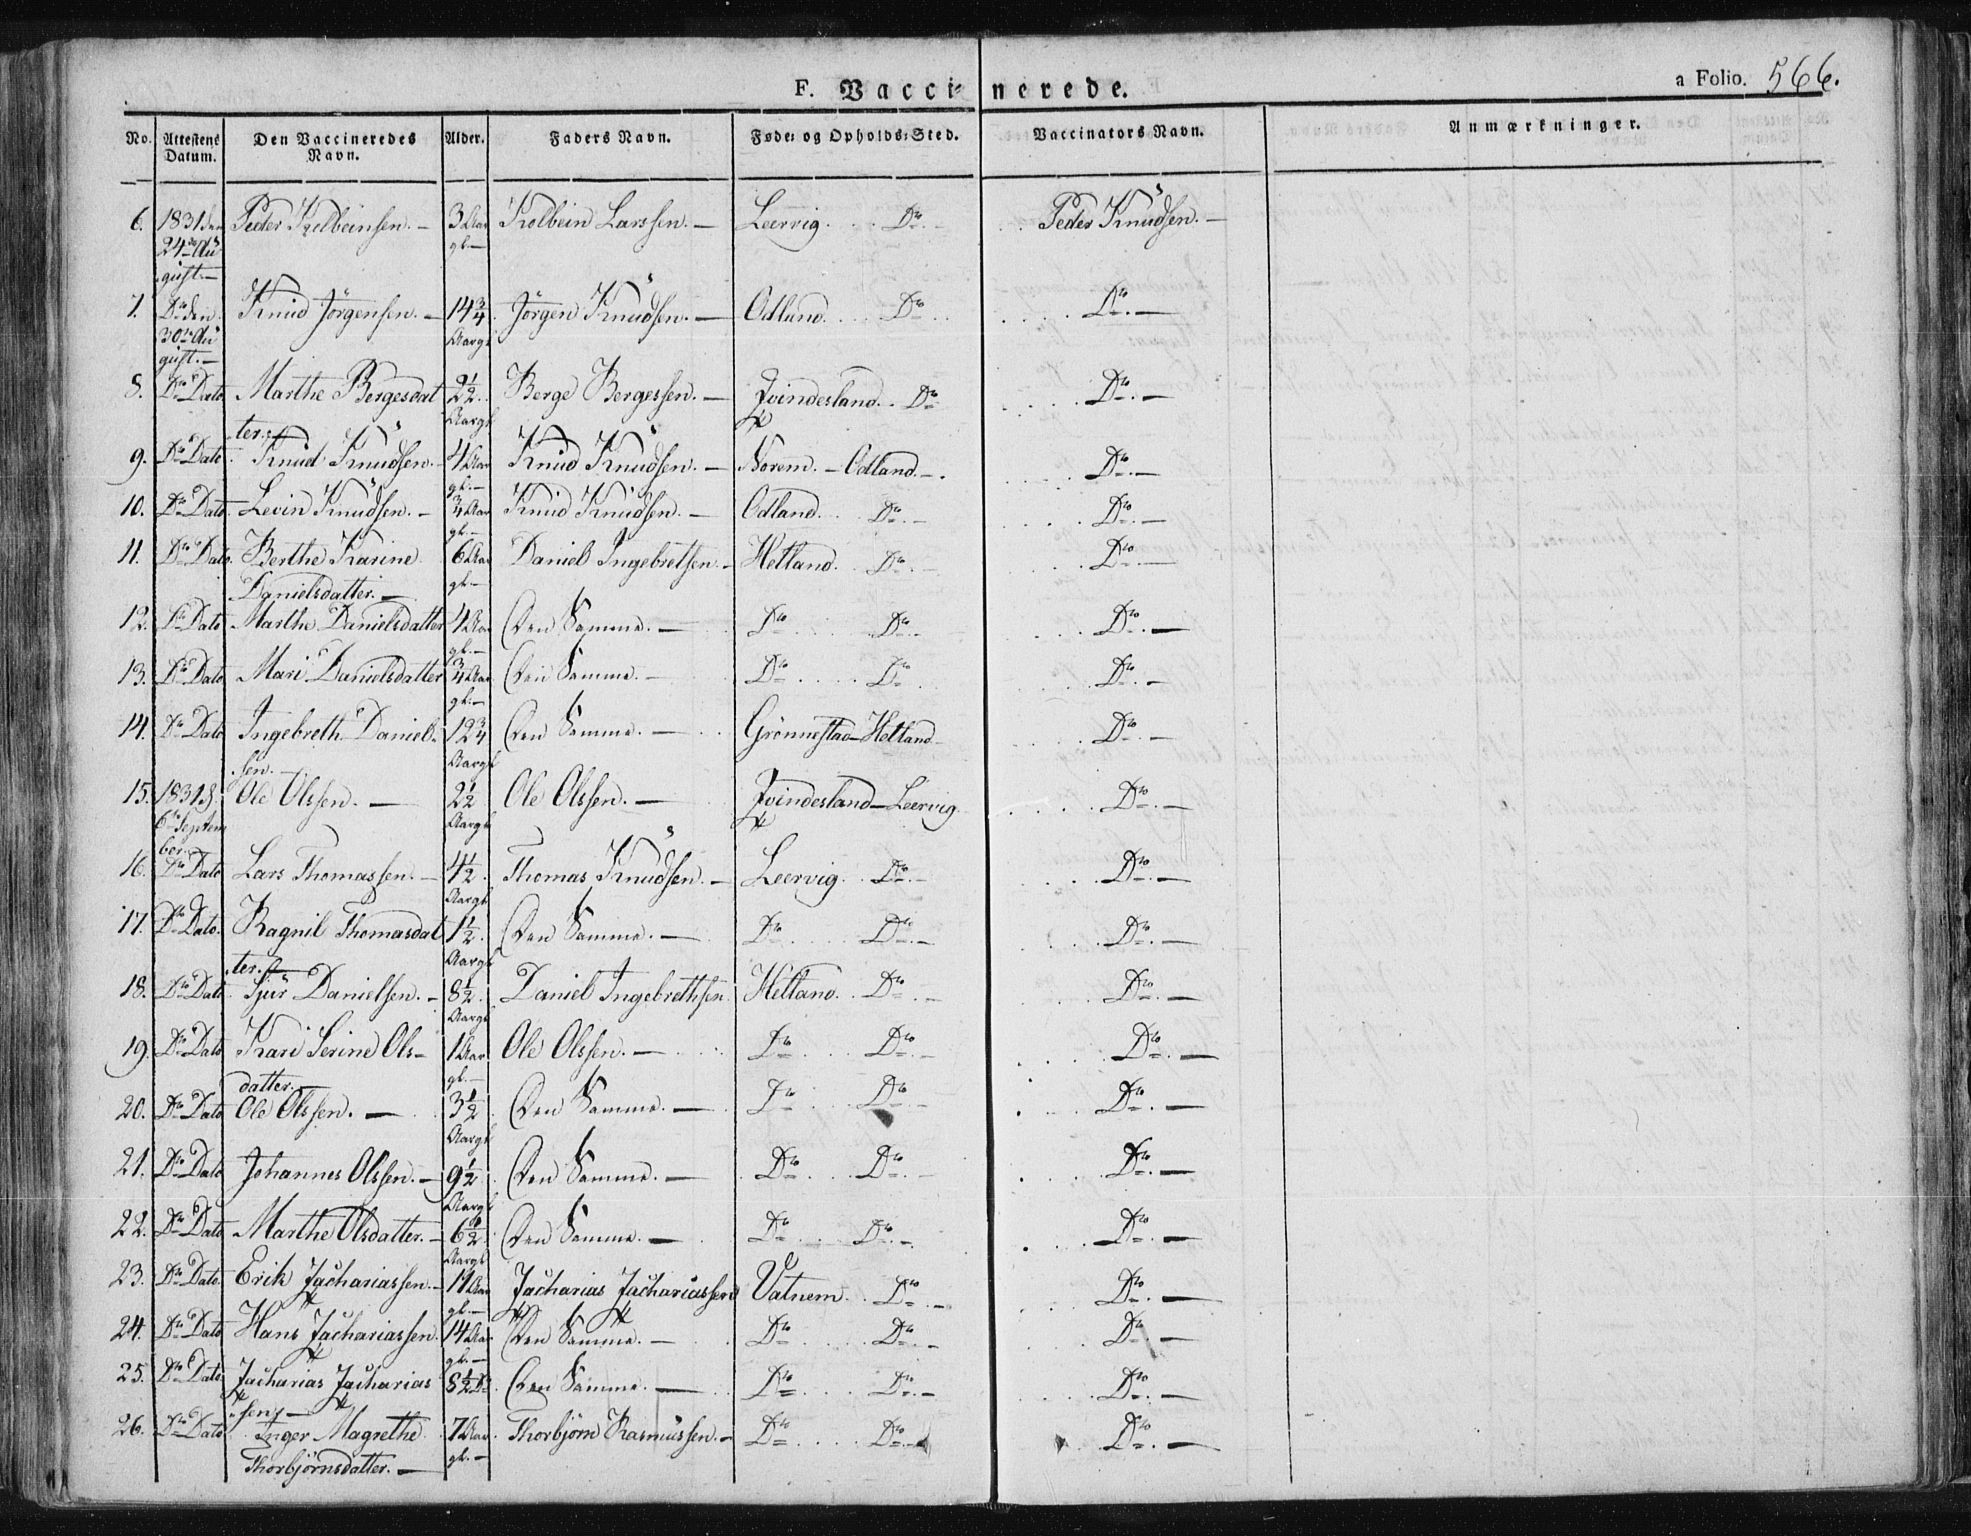 F. Vaccinerede.
a Folio. 566.
No. Attestens Datum. Den Vaccineredes Navn. Alder. Faders Navn. Føde- og Opholds-Sted. Vaccinators Navn. Anmærkninger.
6. 1831 den 24de August.— Peder Kolbeinsen.— 3 Aar gl.— Kolbein Larssen.— Leervig. Do.— Peder Knudsen.—
7. Do den 30te August.— Knud Jörgensen.— 14 3/4 Aargl Jörgen Knudsen.— Odland. Do Do.—
8. Do Dato Marthe Bergesdatter.— 2 1/2 Aargl Berge Bergessen.— Qvindesland. Do Do.—
9. Do Dato Knud Knudsen.— 4 Aar gl.— Knud Knudsen.— Norem.— Odland.— Do.—
10. Do Dato Levin Knudsen.— 3/4 Aar gl.— Knud Knudsen.— Odland. Do.— Do.—
11. Do Dato Berthe Karine Danielsdatter.— 6 Aar gl.— Daniel Ingebretsen.— Hetland. Do.— Do.—
12. Do Dato Marthe Danielsdatter 4 Aar gl.— Den Samme.— Do Do.— Do.—
13. Do Dato Mari Danielsdatter 3/4 Aar gl.— Den Samme.— Do Do Do.—
14. Do Dato Ingebreth Danielsen.— 12 3/4 Aargl Den Samme.— Grönnestad— Hetland Do.—
15. 1831 d. 6te September Ole Olssen.— 2 1/2 Aargl Ole Olssen.— Qvindesland— Leervig Do.—
16. Do Dato Lars Thomassen.— 4 1/2 Aargl Thomas Knudsen.— Leervig. Do.— Do.—
17. Do Dato. Ragnil Thomasdatter.— 1 1/2 Aargl Den Samme.— Do Do.— Do.—
18. Do Dato Sjur Danielsen.— 8 1/2 Aargl Daniel Ingebrethsen Hetland. Do.— Do.—
19. Do Dato Kari Serine Olsdatter.— 1 Aar gl.— Ole Olssen.— Do Do.— Do.—
20. Do Dato Ole Olssen.— 3 1/2 Aargl Den Samme.— Do Do.— Do.—
21. Do Dato Johannes Olssen.— 9 1/2 Aargl Den Samme.— Do Do.— Do.—
22. Do Dato Marthe Olsdatter.— 6 1/2 Aargl Den Samme.— Do Do.— Do.—
23. Do Dato Erik Zachariassen.— 11 Aar gl.— Zacharias Zachariassen Vatnem. Do.— Do.—
24. Do Dato Hans Zachariassen. 14 Aar gl.— Den Samme.— Do Do.— Do.—
25. Do Dato Zacharias Zachariassen.— 8 1/2 Do Den Samme.— Do Do.— Do.—
26. Do Dato Inger Magrethe Thorbjörnsdatter.— 7 Aar gl.— Thorbjörn Rasmussen.— Do Do.— Do.—